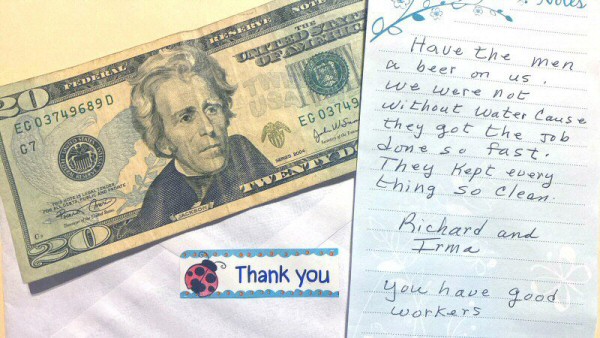 FEDERAL RESERVE NOTE
THE UNITED STATES
OF AMERICA
20
EG 03749689 D
G7
EG 03749
THIS NOTE IS LEGAL TENDER
FOR ALL DEBTS, PUBLIC AND PRIVATE
SERIES 2004
JACKSON
TWENTY DO
20
Thank you
Notes
Have the men
a beer on us.
We were not
without water Cause
they got the job
done so fast.
They Kept every
thing so clean.
Richard and
Irma
you have good
workers